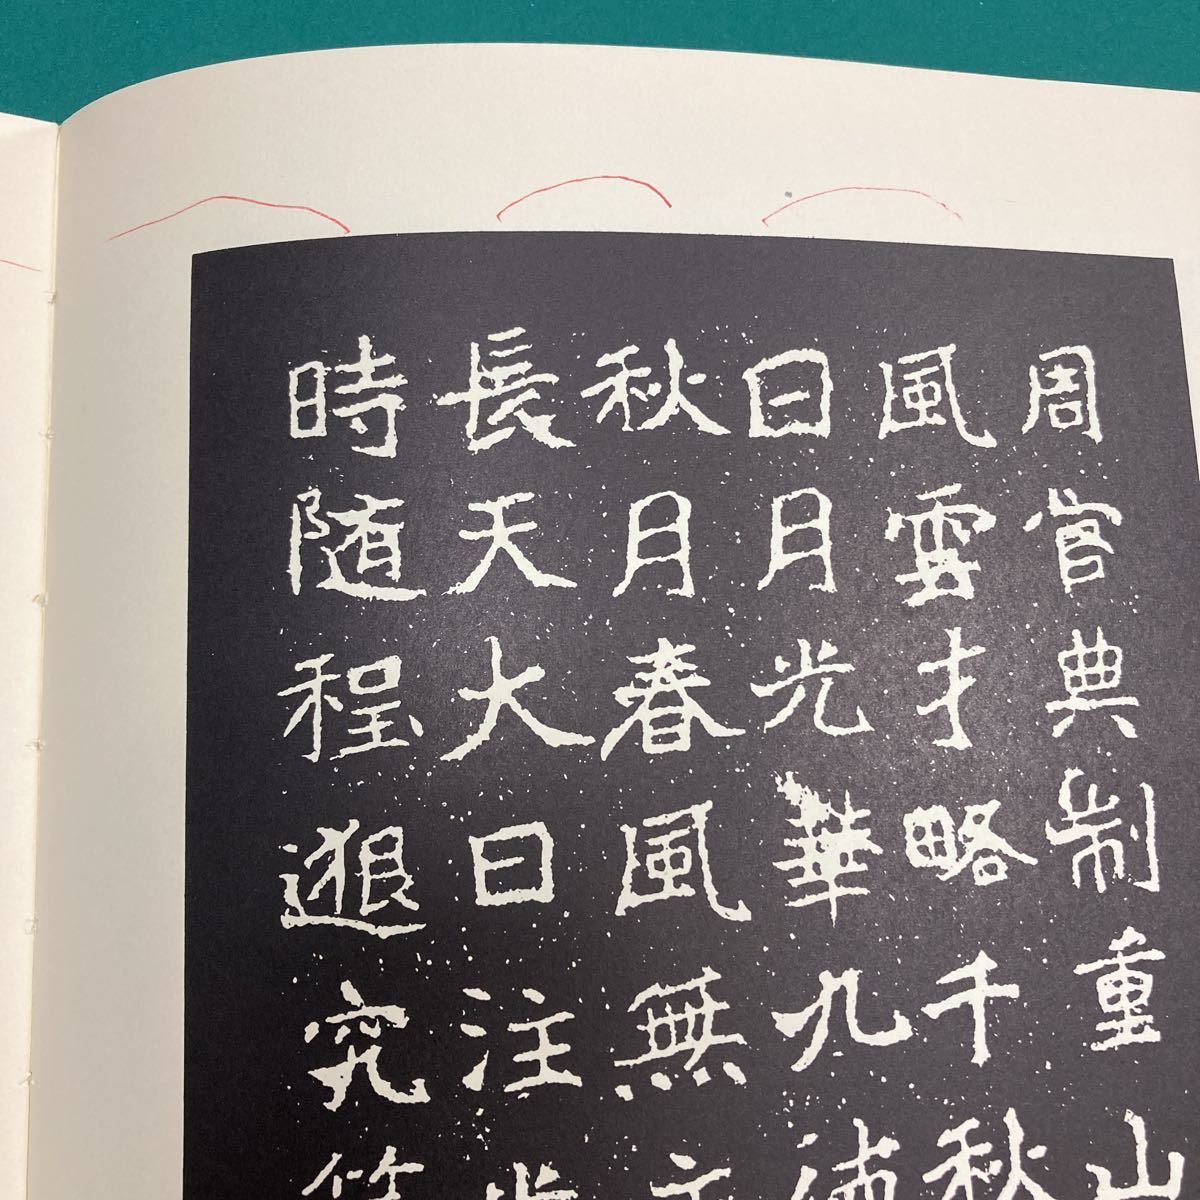 周官典制重山
風雲才略千秋
日月光華九
秋月春風無
長天大日注
時随程
究